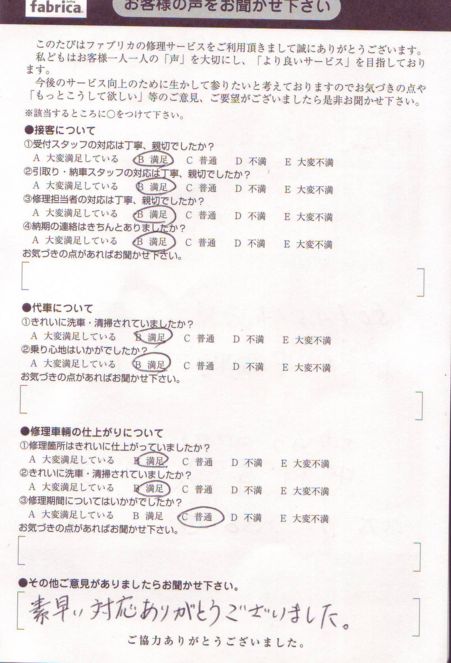 fabrica.
お客様の声をお聞かせ下さい
このたびはファブリカの修理サービスをご利用頂きまして誠にありがとうございます。
私どもはお客様一人一人の「声」を大切にし、「より良いサービス」を目指しており
ます。
今後のサービス向上のために生かして参りたいと考えておりますのでお気づきの点や
「もっとこうして欲しい」等のご意見、ご要望がございましたら是非お聞かせ下さい。
※該当するところに○をつけて下さい。
●接客について
①受付スタッフの対応は丁寧、親切でしたか?
A 大変満足している B 満足 C 普通 D 不満 E 大変不満
②引取り・納車スタッフの対応は丁寧、親切でしたか?
A 大変満足している B 満足 C 普通 D 不満 E 大変不満
③修理担当者の対応は丁寧、親切でしたか?
A 大変満足している B 満足 C 普通 D 不満 E 大変不満
④納期の連絡はきちんとありましたか?
A 大変満足している B 満足 C 普通 D 不満 E 大変不満
お気づきの点があればお聞かせ下さい。
●代車について
①きれいに洗車・清掃されていましたか?
A 大変満足している B 満足 C 普通 D 不満 E 大変不満
②乗り心地はいかがでしたか?
A 大変満足している B 満足 C 普通 D 不満 E 大変不満
お気づきの点があればお聞かせ下さい。
●修理車輌の仕上がりについて
①修理箇所はきれいに仕上がっていましたか?
A 大変満足している B 満足 C 普通 D 不満 E 大変不満
②きれいに洗車・清掃されていましたか?
A 大変満足している B 満足 C 普通 D 不満 E 大変不満
③修理期間についてはいかがでしたか?
A 大変満足している B 満足 C 普通 D 不満 E 大変不満
お気づきの点があればお聞かせ下さい。
●その他ご意見がありましたらお聞かせ下さい。
素早い対応ありがとうございました。
ご協力ありがとうございました。